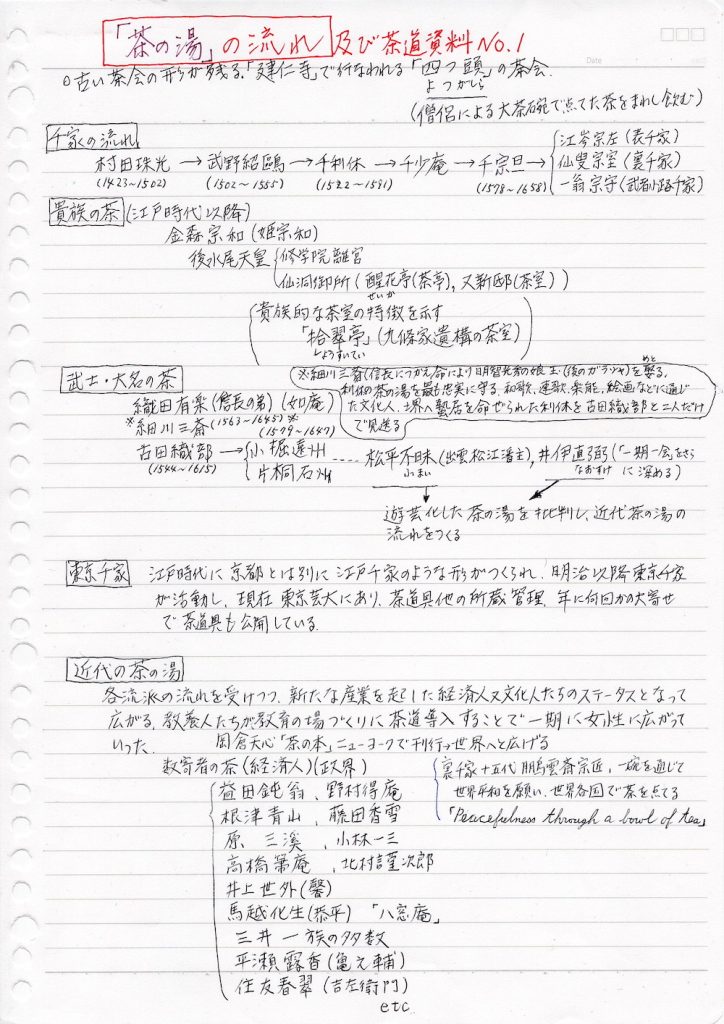 「茶の湯」の流れ及び茶道資料No.1
Date
○古い茶会の形が残る、「建仁寺」で行なわれる「四つ頭」の茶会
よつがしら
(僧侶による大茶碗で点てた茶をまわし飲む)
千家の流れ
村田珠光→武野紹鷗→千利休→千少庵→千宗旦→
江岑宗左(表千家)
仙叟宗室(裏千家)
一翁宗守(武者小路千家)
(1423~1502) (1502~1555) (1522~1591) (1578~1658)
貴族の茶(江戸時代以降)
金森宗和(姫宗和)
後水尾天皇 修学院離宮
仙洞御所(醒花亭(茶亭),又新邸(茶室))
せいか
貴族的な茶室の特徴を示す
「拾翠亭」(九條家遺構の茶室)
しょうすいてい
武士・大名の茶
※細川三斎(信長につかえ命により明智光秀の娘 玉(後のガラシャ)を娶る,
めと
利休の茶の湯を最も忠実に守る、和歌、連歌、楽能、絵画などに通じ
た文化人、堺へ蟄居を命ぜられた利休を古田織部と二人だけ
で見送る
織田有楽(信長の弟)(如庵)
※細川三斎(1563~1645)※
(1579~1647)
古田織部→小堀遠州
(1544~1615) 片桐石州
……松平不昧(出雲松江藩主),井伊直弼(「一期一会」をさら
ふまい なおすけ に深める)
遊芸化した茶の湯を批判し、近代茶の湯の
流れをつくる
東京千家 江戸時代に京都とは別に江戸千家のような形がつくられ、明治以降東京千家
が活動し、現在東京芸大にあり、茶道具他の所蔵管理、年に何回かの大寄せ
で茶道具も公開している
近代の茶の湯
各流派の流れを受けつつ、新たな産業を起した経済人又文化人たちのステータスとなって
広がる、教養人たちが教育の場づくりに茶道導入することで一期に女性に広がって
いった 岡倉天心「茶の本」ニューヨークで刊行→世界へと広げる
数寄者の茶(経済人)(政界)
益田鈍翁、野村得庵
根津青山、藤田香雪
原 三溪、小林一三
高橋箒庵、北村謹次郎
井上世外(馨)
馬越化生(恭平)「八窓庵」
三井一族の多数
平瀬露香(亀之輔)
住友春翠(吉左衛門)
etc
裏千家十五代鵬雲斎宗匠、一碗を通じて
世界平和を願い、世界各国で茶を点てる
「Peacefulness through a bowl of tea」